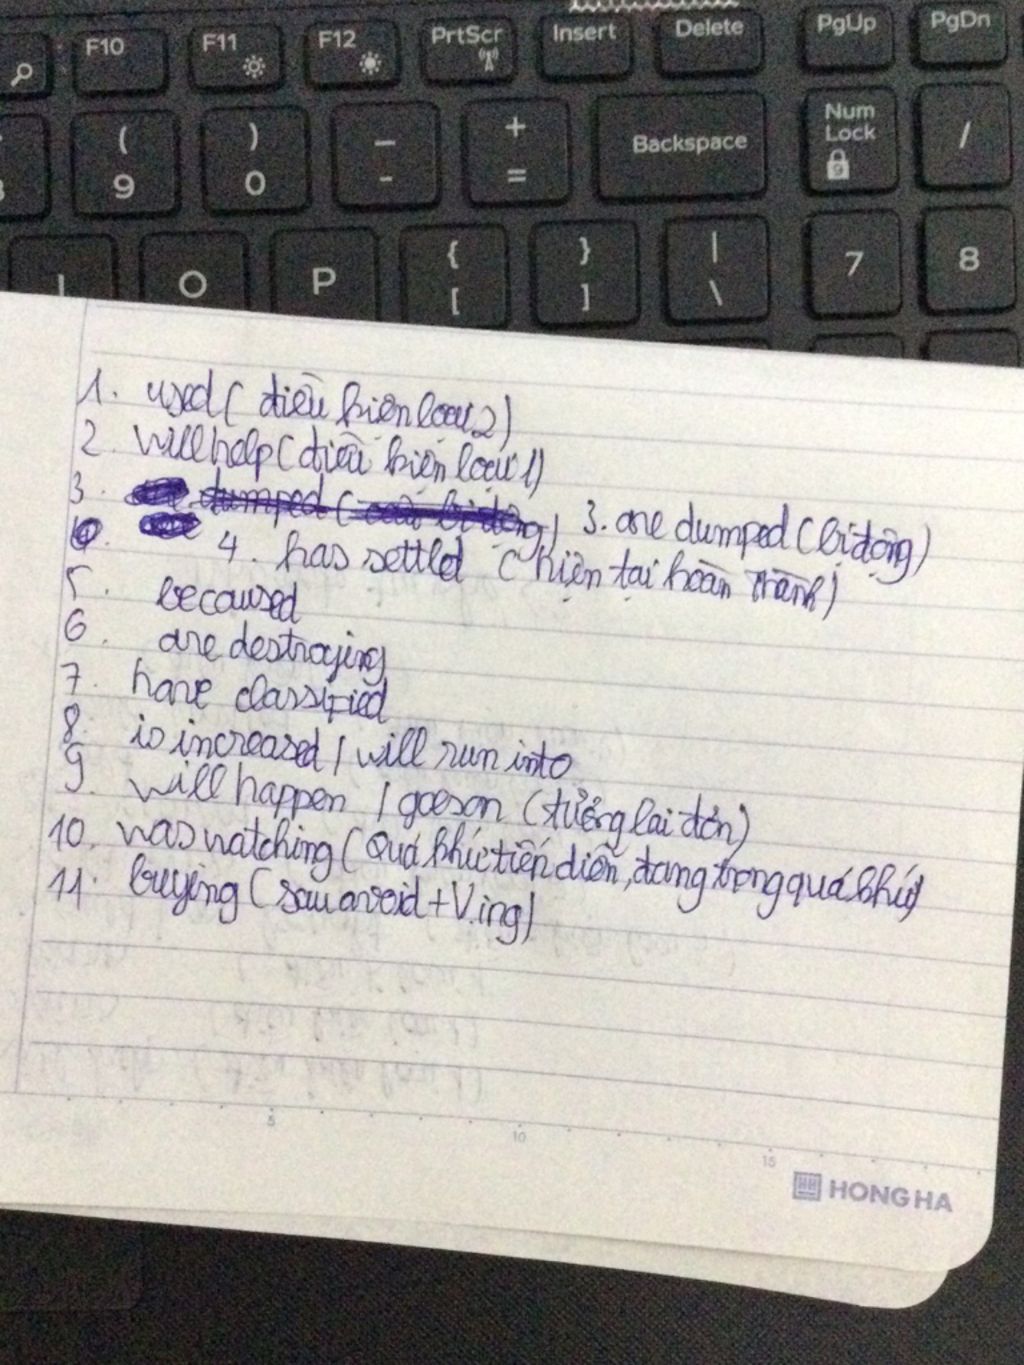 F10
F11
F12
PrtScr
Insert
Delete
PgUp
PgDn
(
9
)
0
–
-
+
=
Backspace
Num
Lock
/
I
O
P
{
[
}
]
|
\
7
8
1. used ( điều kiện loại 2)
2. will help ( điều kiện loại 1)
3. dumped ( bị động) 3. are dumped ( bị động)
4. has settled ( hiện tại hoàn thành)
5. becaused
6. are destroying
7. have classified
8. is increased / will run into
9. will happen / goes on ( tương lai đơn)
10. was watching ( Quá khứ tiếp diễn, đang trong quá khứ)
11. buying ( sau avoid + V.ing)
5
10
15
HONG HA